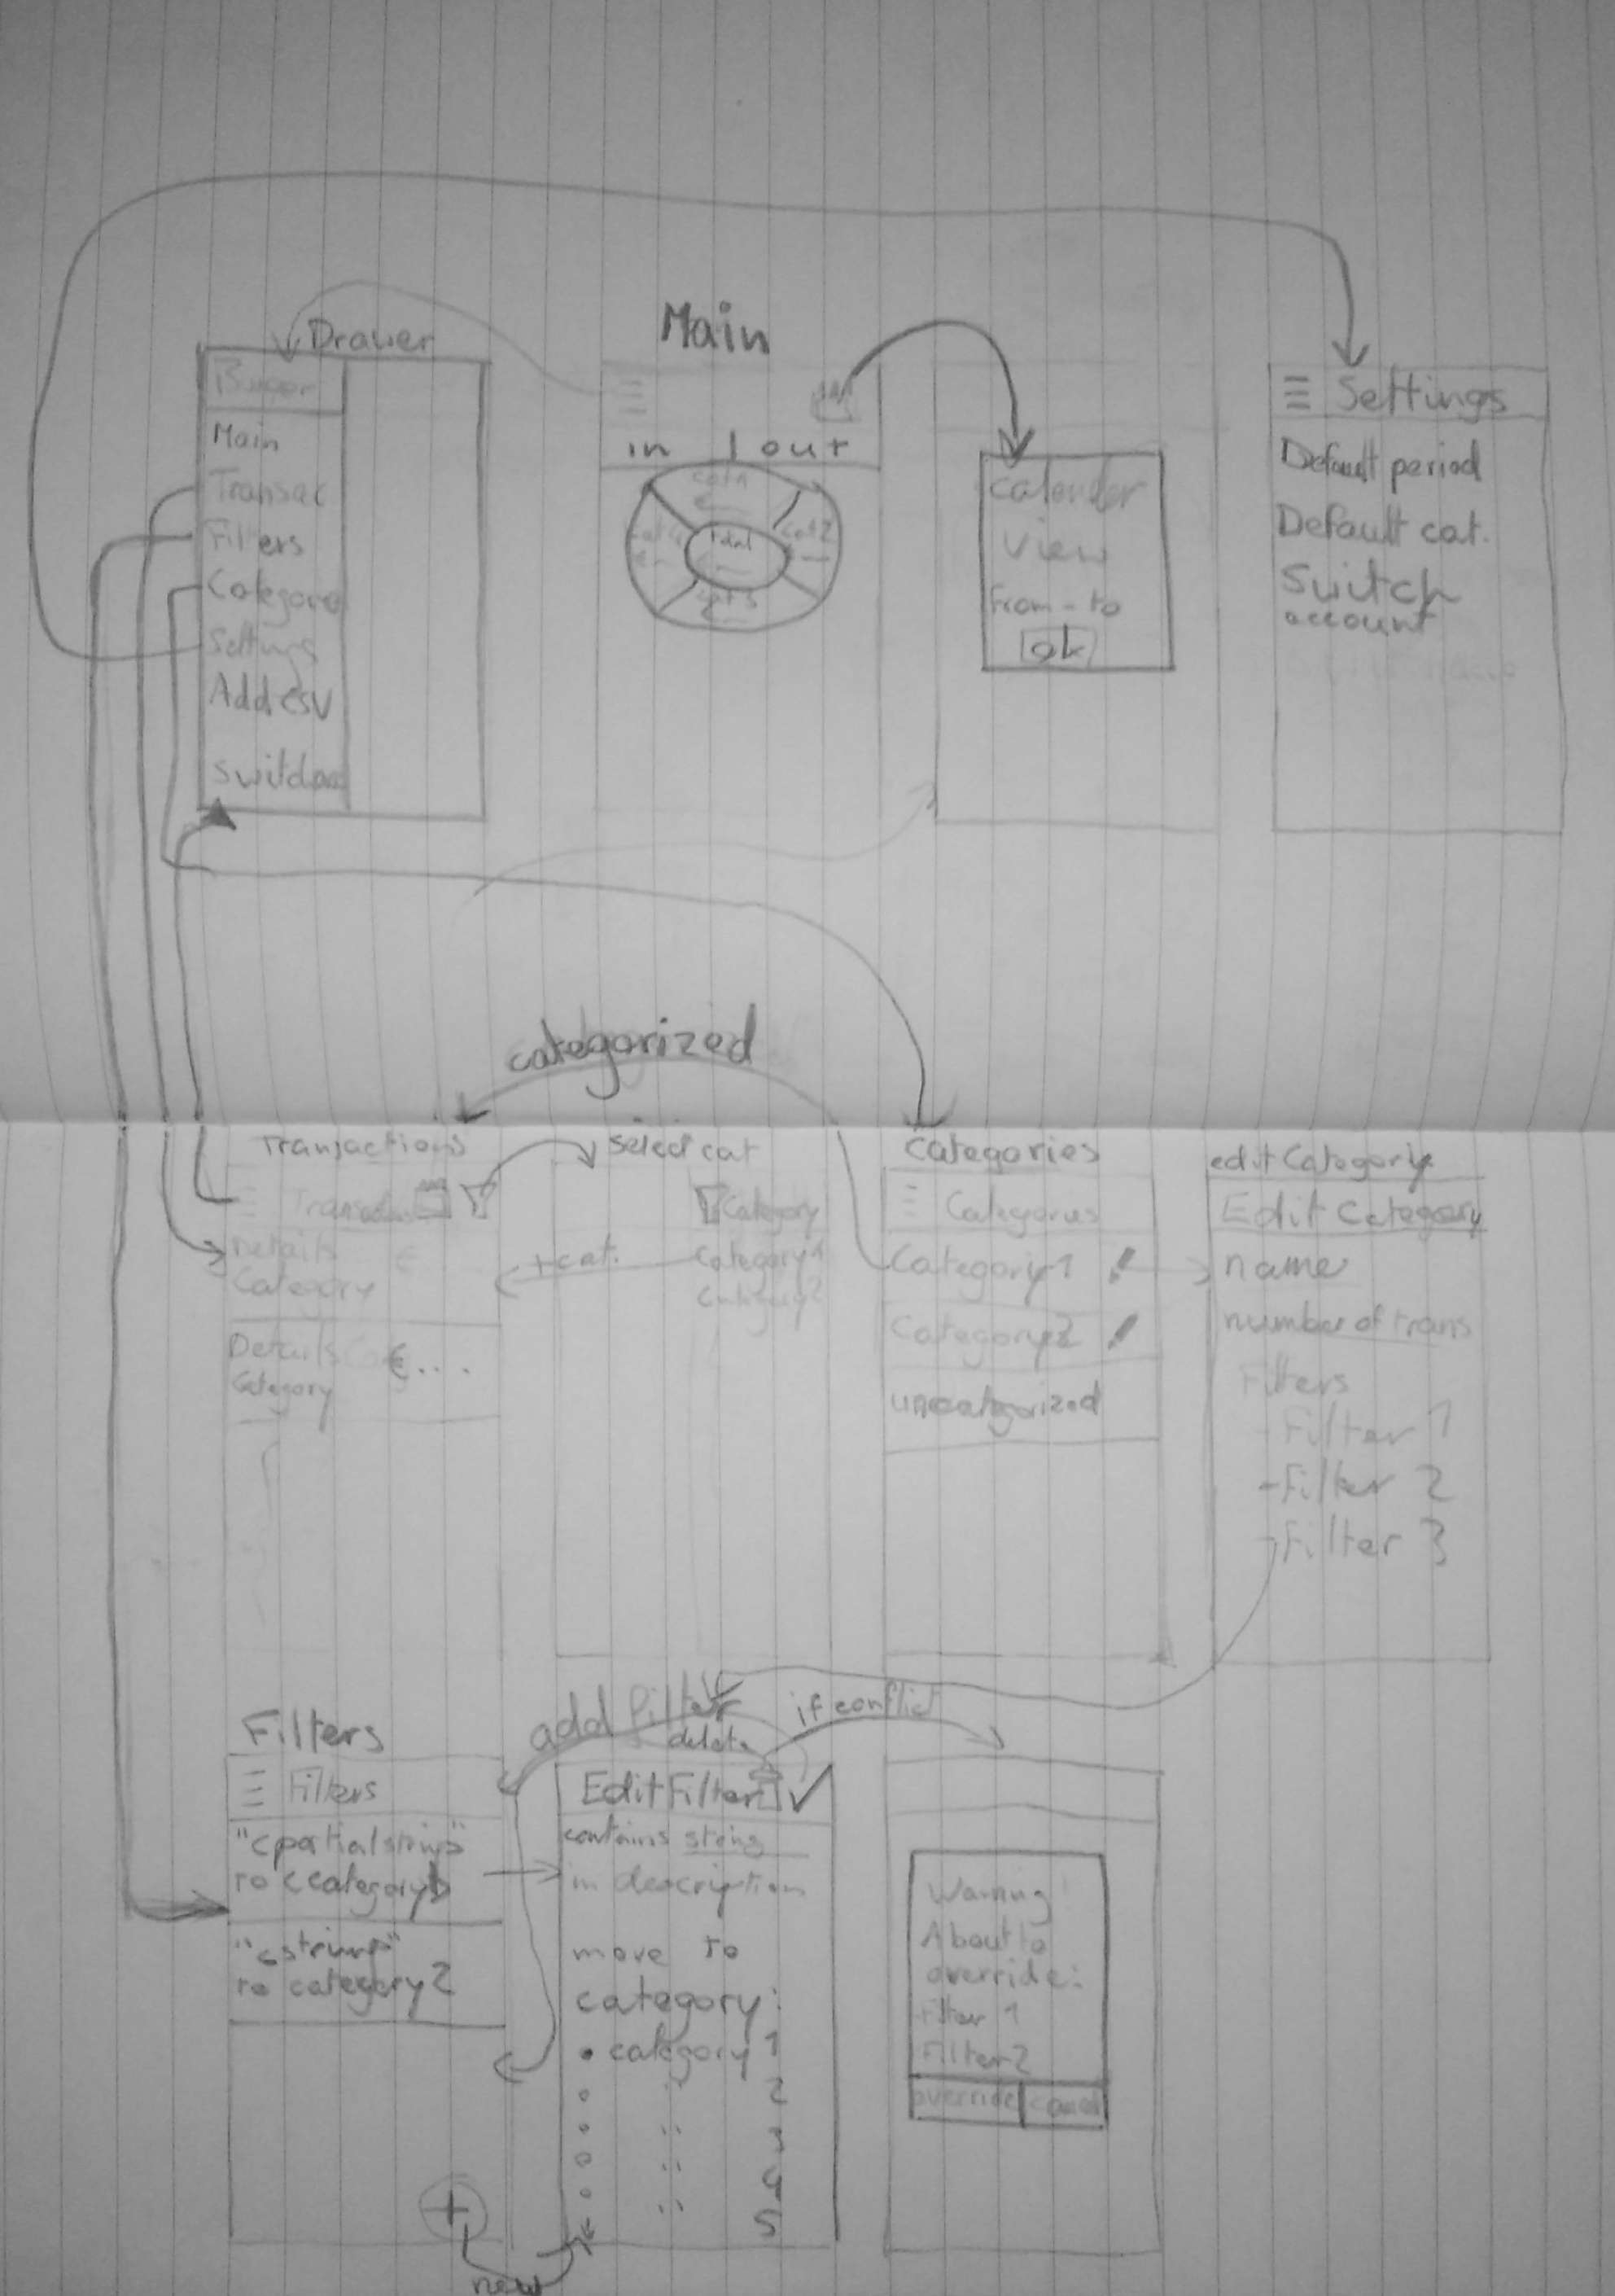 Drawer
Main
Transac
Filters
Categore
Settings
Add CSV
Main
in | out
cat1
cat2
cat3
cat4
total
calender
view
From - to
ok
Settings
Default period
Default cat.
Switch
account
categorized
Transactions
Details
€
Category
Details
€...
Category
select cat
Category
Category 1
Category 2
+cat.
Categories
Categories
Category 1
Category 2
uncategorized
edit Category
Edit Category
name
number of trans
Filters
-Filter 1
-Filter 2
-Filter 3
Filters
Filters
"<partial string>"
to <category>
"<string>"
to category 2
+
new
add filter
delete
if conflict
Edit Filter
contains string
in description
move to
category:
category 1
" 2
" 3
" 4
" 5
Warning!
About to
override:
Filter 1
Filter 2
override
cancel